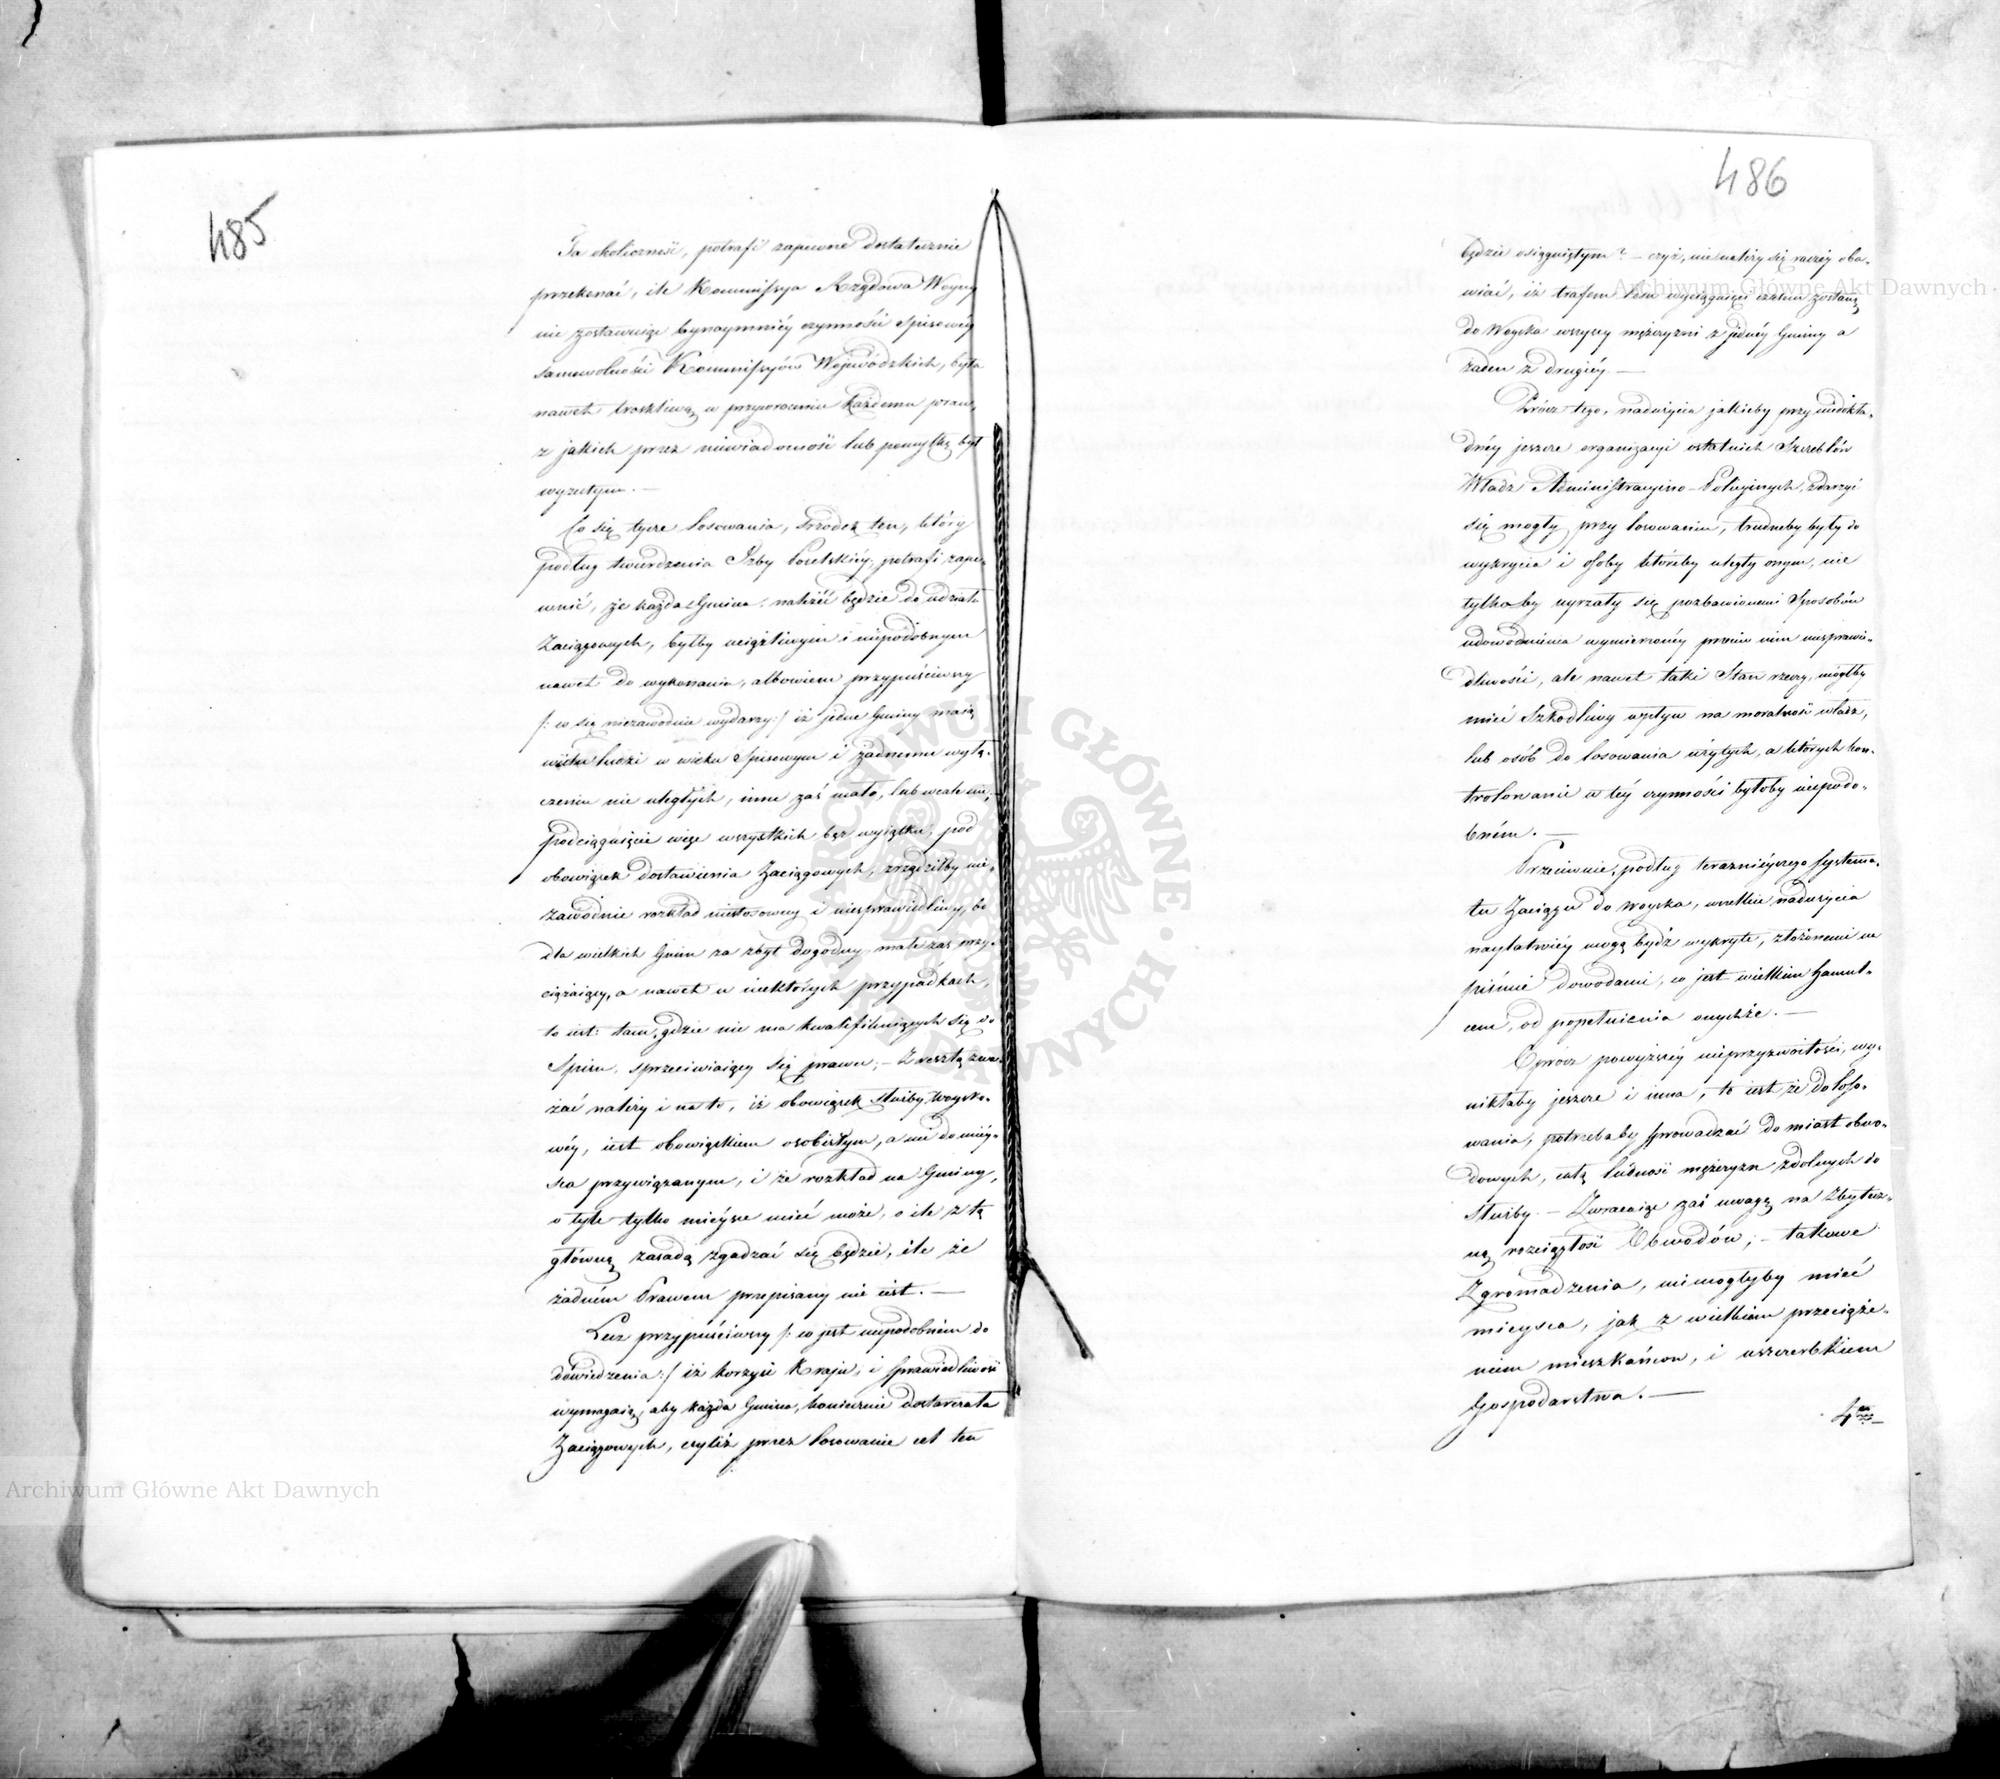 485
Ta okoliczność, potrafi zapewne dostatecznie
przekonać, ile Kommissya Rządowa Woyny
nie zostawuiąc bynaymniéy czynności spisowéy
samowolności Kommissyów Wojewódzkich, była
nawet troskliwą w przywróceniu każdemu praw,
z jakich przez niewiadomość lub pomyłkę był
wyzutym. —
Co się tycze losowania, środek ten, który
podług twierdzenia Izby Poselskiéy, potrafi zape-
wnić, że każda Gmina, należeć będzie do udziału
Zaciągowych, byłby uciążliwym i niepodobnym
nawet do wykonania, albowiem przypuściwszy
/: co się niezawodnie wydarzy:/ iż jedne Gminy maią
wielu ludzi w wieku Spisowym i żadnemu wyłą-
czeniu nie uległych, inne zaś mało, lub wcale nie;—
podciągnięcie więc wszystkich bez wyiątku, pod
obowiązek dostawienia Zaciągowych, zrządziłby nie-
zawodnie rozkład niestosowny i niesprawiedliwy, bo
dla wielkich Gmin za zbyt dogodny, małe zaś przy-
ciążaiący, a nawet w niektórych przypadkach,
to iest: tam, gdzie nie ma kwalifikuiących się do
Spisu, sprzeciwiaiący się prawu; — Zresztą zwa-
żać należy i na to, iż obowiązek służby woysko-
wéy, iest obowiązkiem osobistym, a nie do miéy-
sca przywiązanym, i że rozkład na Gminy,
o tyle tylko miéysce mieć może, o ile z tą
główną zasadą zgadzać się będzie, ile że
żadném Prawem przepisany nie iest. —
Lecz przypuściwszy /: co jest niepodobném do
dowiedzenia:/ iż korzyść Kraju, i sprawiedliwość
wymagaią, aby każda Gmina, koniecznie dostarczała
Zaciągowych, czyliż przez losowanie cel ten
486
będzie osiągniętym? — czyż, nie należy się raczéy oba-
wiać, iż trafem losu wyciągnięci czasem zostaną
do Woyska wszyscy mężczyzni z jednéy Gminy a
żaden z drugiéy. —
Prócz tego, nadużycia jakieby przy niedokła-
dnéy jeszcze organizacyi ostatnich Szczeblów
Władz Administracyino-Policyinych, zdarzyć
się mogły przy losowaniu, trudneby były do
wykrycia i osoby któreby uległy onym, nie
tylkoby uyrzały się pozbawionemi Sposobów
udowodnienia wymierzonéy przeciw nim niesprawie-
dliwości, ale nawet taki Stan rzeczy, mógłby
mieć Szkodliwy wpływ na moralność władz,
lub osób do losowania użytych, a których kon-
trolowanie w téy czynności byłoby niepodo-
bném. —
Przeciwnie, podług teraznieyszego systema-
tu Zaciągu do woyska, wszelkie nadużycia
nayłatwiéy mogą bydź wykryte, złożonemi na
piśmie dowodami, co jest wielkim hamul-
cem, od popełnienia onychże. —
Oprócz powyższéy nieprzyzwoitości, wy-
nikłaby jeszcze i inna, to iest że do loso-
wania, potrzebaby sprowadzać do miast obwo-
dowych, całą ludność mężczyzn zdolnych do
służby. — Zwracaiąc zaś uwagę na zbytecz-
ną rozciągłość Obwodów; — takowe
Zgromadzenia, niemogłyby mieć
mieysca, jak z wielkiem przeciąże-
niem mieszkańców, i uszczerbkiem
Gospodarstwa. —